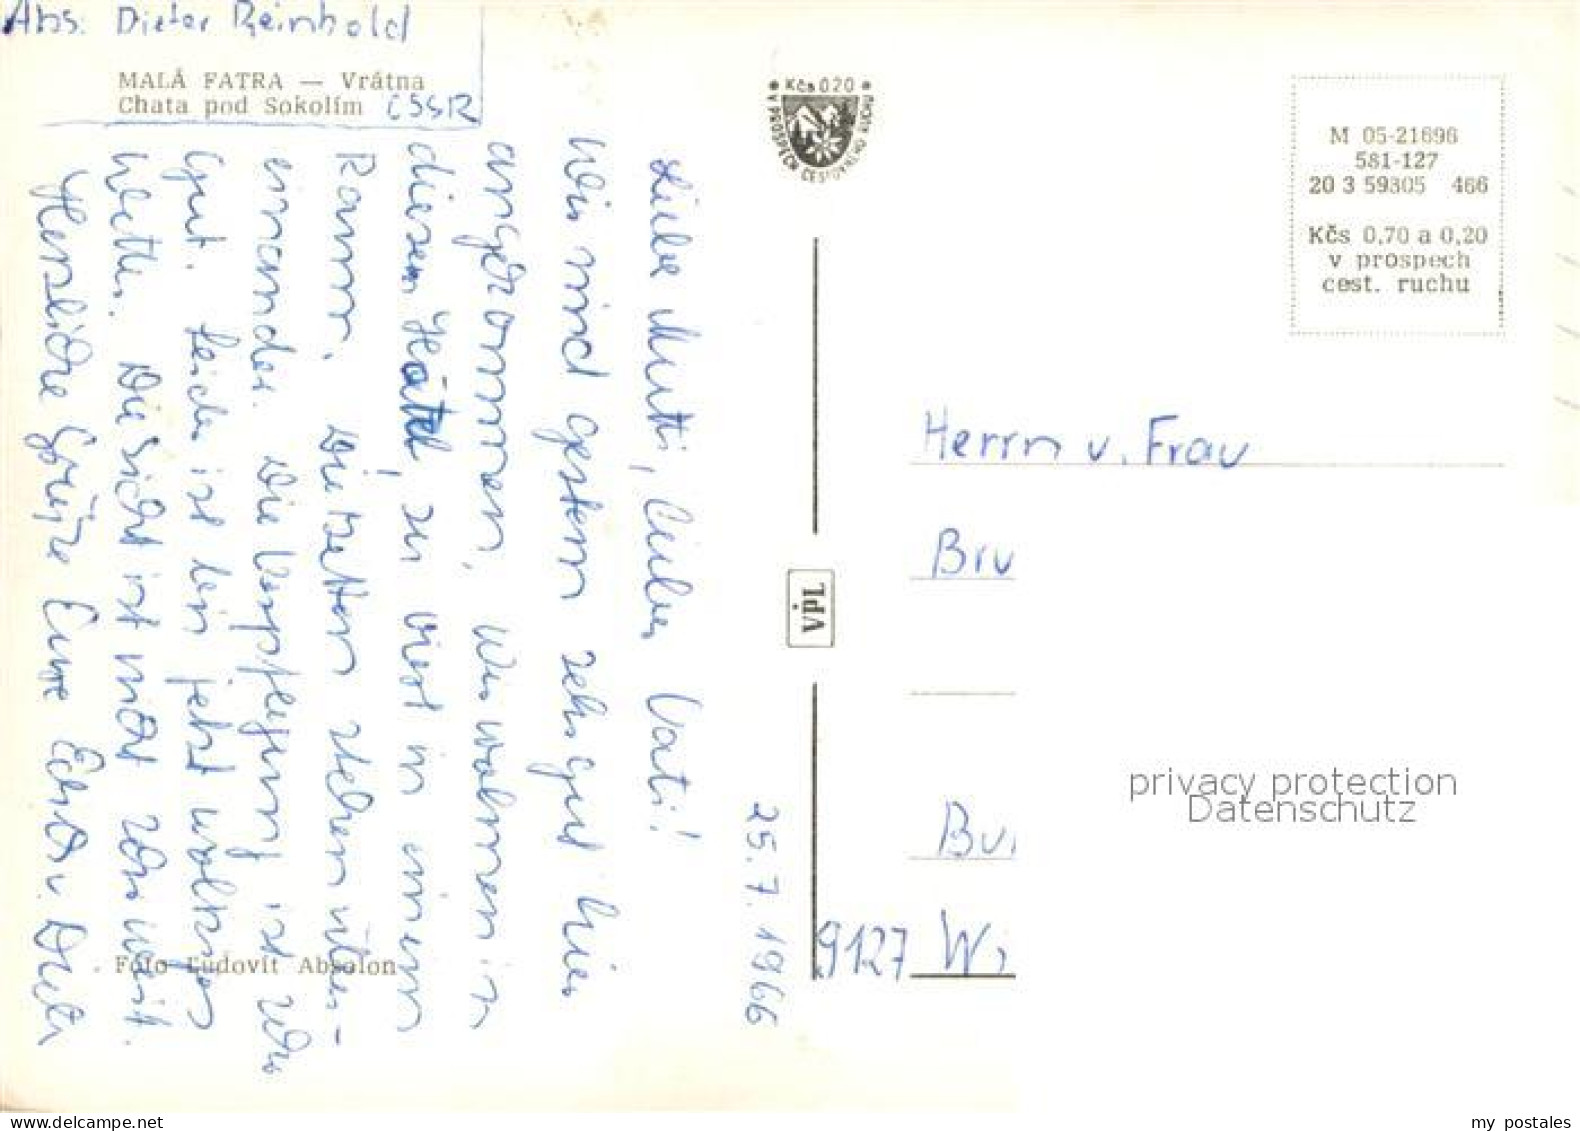 Abs. Dieter Reinhold
MALÁ FATRA — Vrátna
Chata pod Sokolím ČSSR
25.7.1966
Liebe Mutti, lieber Vati!
Wir sind gestern sehr gut hier
angekommen, Wir wohnen in
diesem Hotel, zu viert in einem
Raum. Die Betten stehen über-
einander. Die Verpflegung ist sehr
gut. Leider ist hier jetzt wolkiges
Wetter. Die Sicht ist nicht sehr weit.
Herzliche Grüße Eure u. Dieter
Foto Ľudovít Absolon
Kčs 0,20
V PROSPECH CESTOVNÉHO RUCHU
VPL
M 05-21696
581-127
20 3 59305 466
Kčs 0,70 a 0,20
v prospech
cest. ruchu
Herrn u. Frau
Bru
Bu
9127 Wi
privacy protection
Datenschutz
my postales